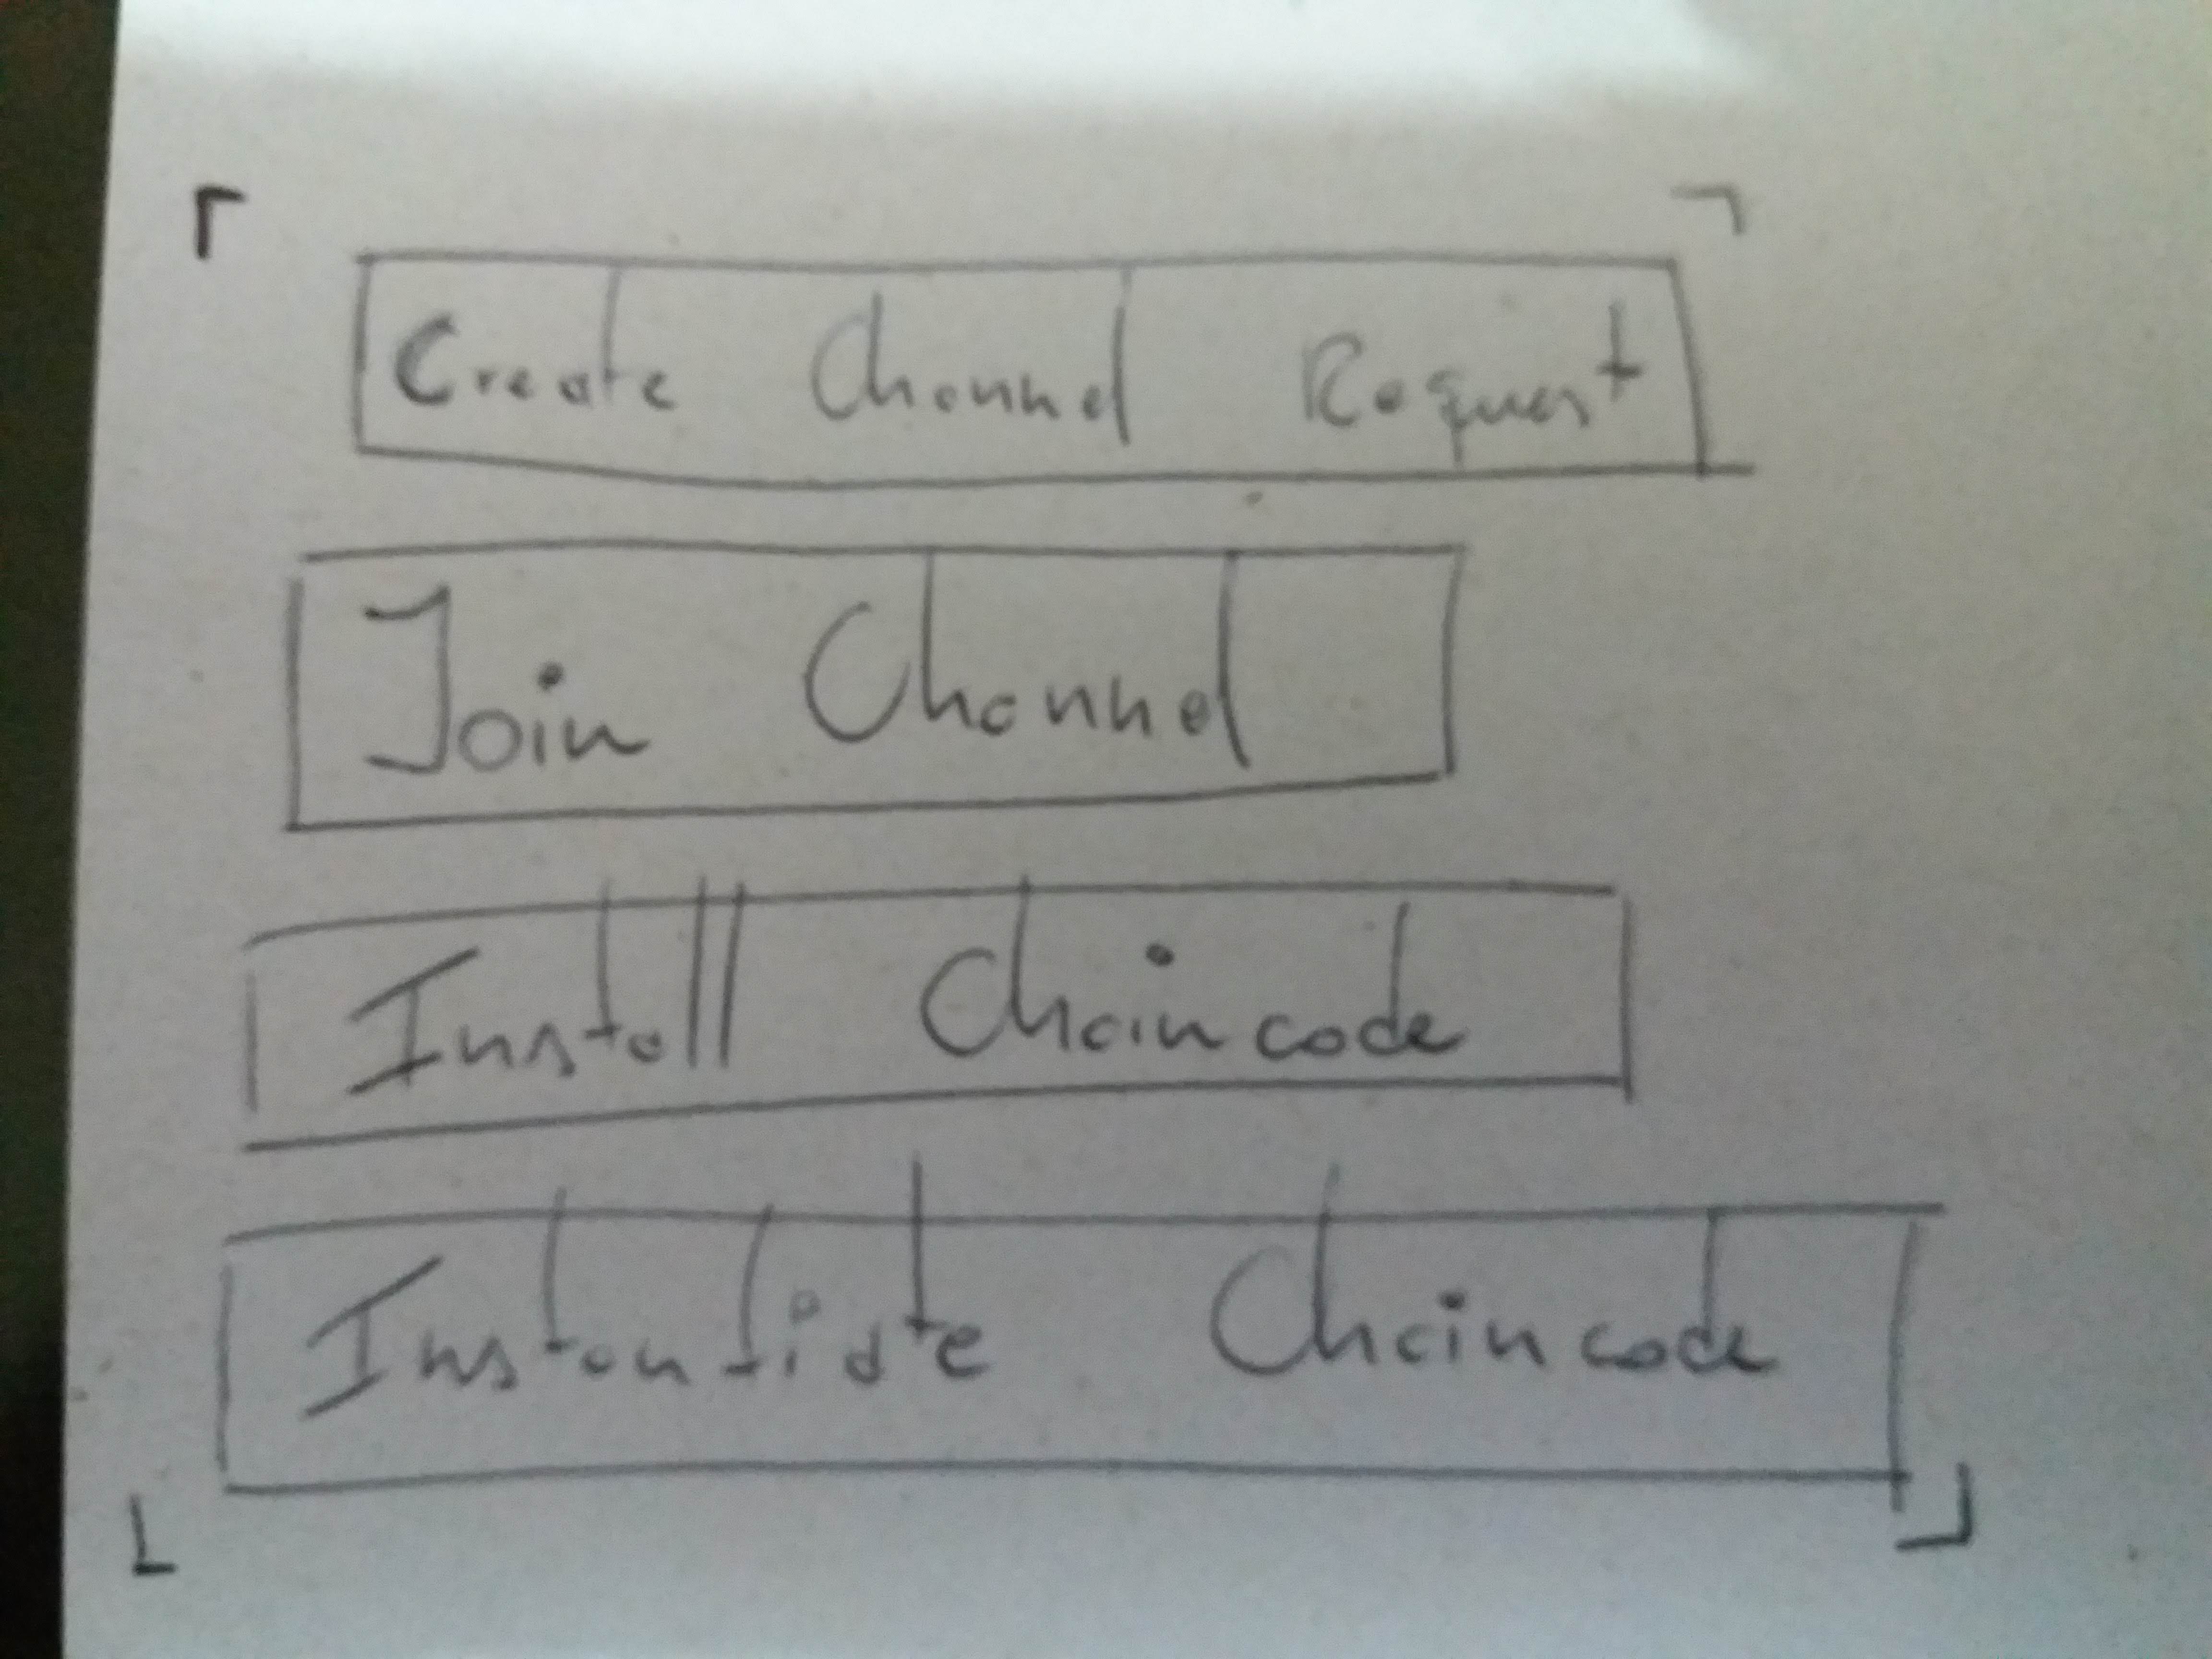 Create Channel Request
Join Channel
Install Chaincode
Instantiate Chaincode